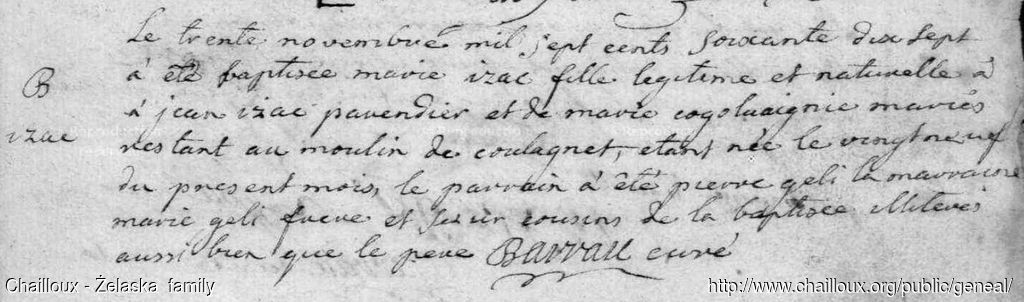 Le trente novembre mil sept cents soixante dix sept
B
à été baptisée marie izac fille legitime et naturelle à
à jean izac pavendier et de marie cogoluaignie mariés
izac
restant au moulin de coulagnet, etant née le vingtneuf
du present mois, le parrain à été pierre geli la marraine
marie geli frere et seur cousins de la baptisée illiterés
aussi bien que le pere Barrau curé
Chailloux - Żelaska family
http://www.chailloux.org/public/geneal/